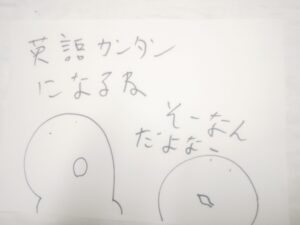 英語カンタン
になるな
そーなん
だよなー